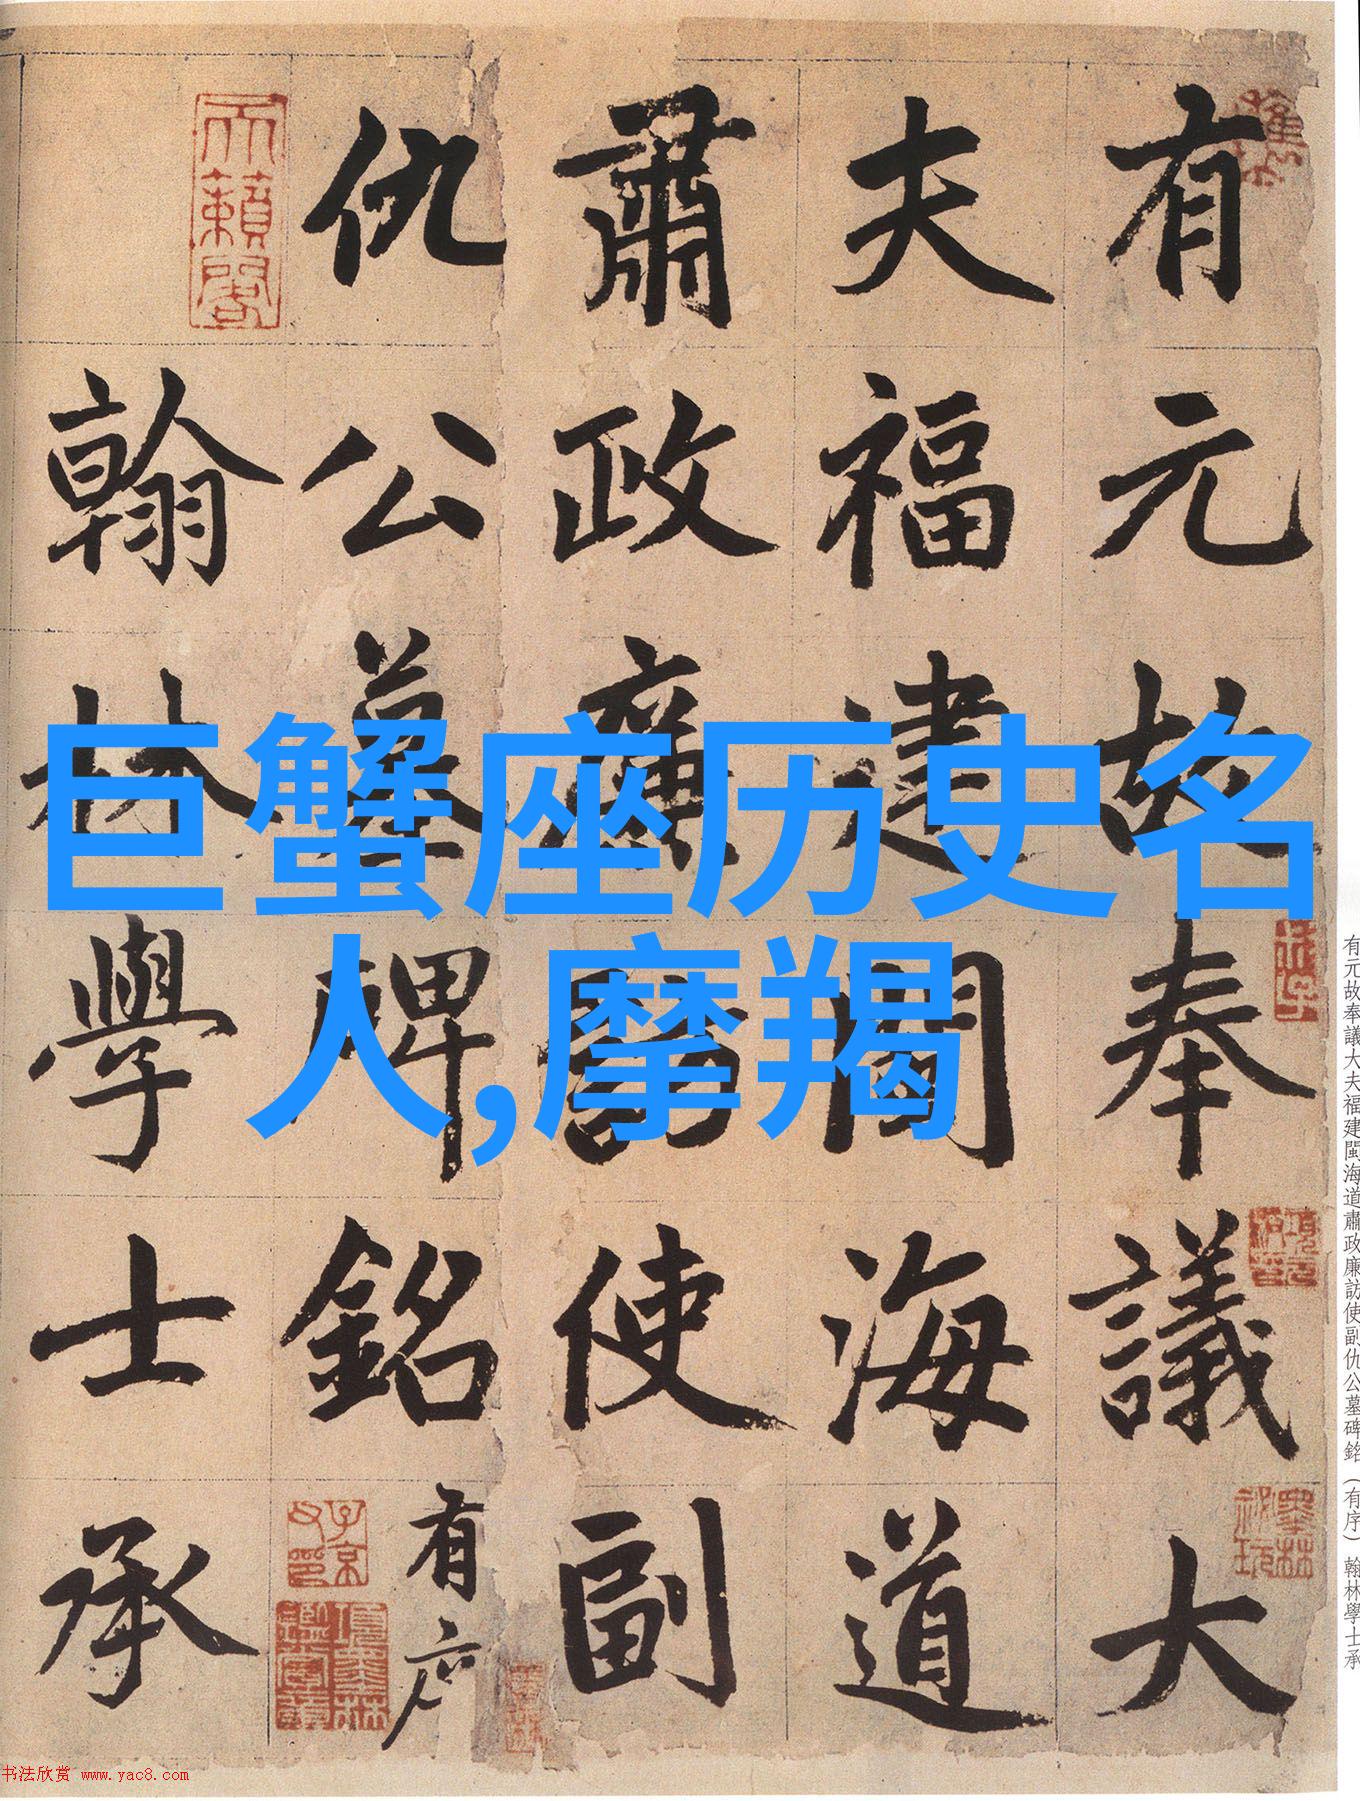 有元故奉議大
夫福建閩海道
肅政廉訪使副
仇公墓碑銘有序
翰林學士承
巨蟹座历史名
人,摩羯
天籟閣
子京父印
有元故奉議大夫福建閩海道肅政廉訪使副仇公墓碑銘（有序）翰林學士承
书法欣赏 www.yac8.com